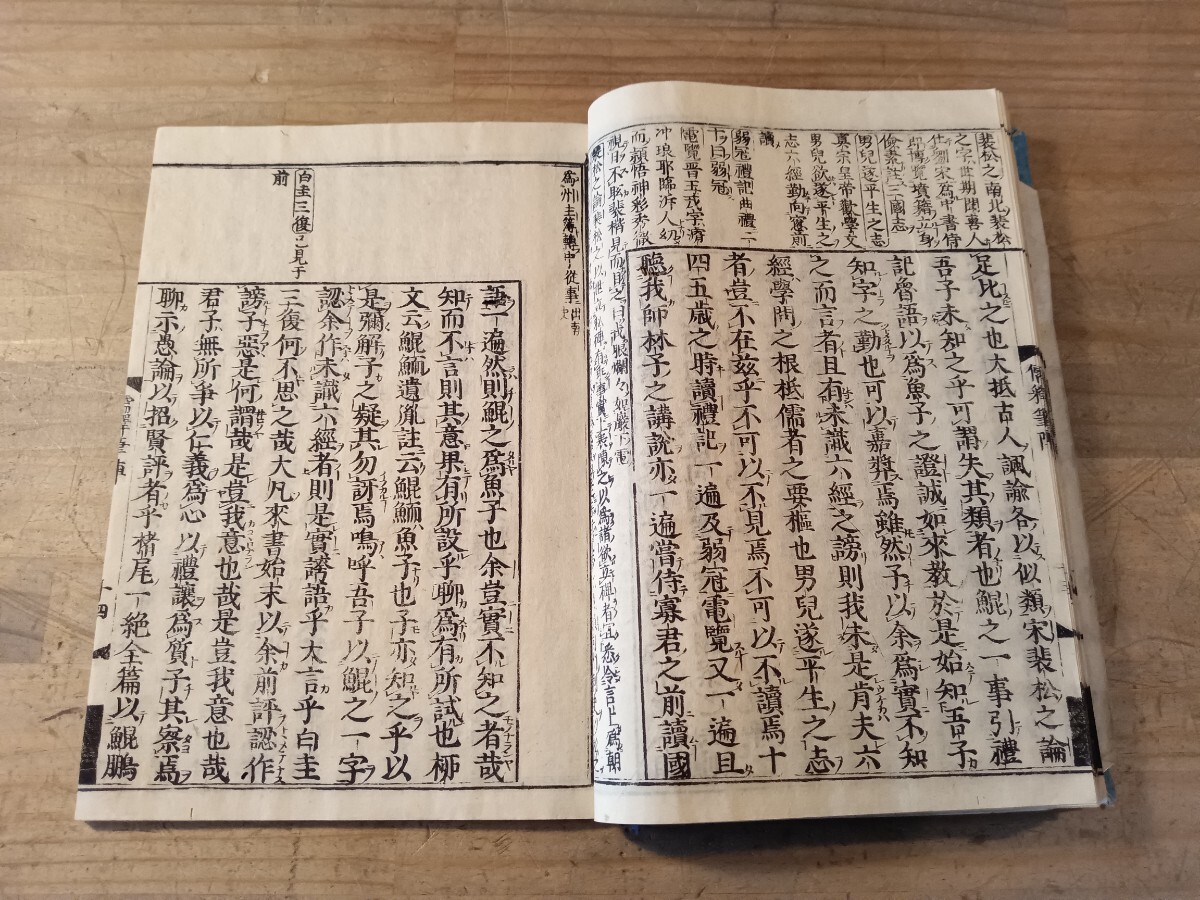 裴松之南北裴松
之字世期聞喜人
仕劉宋爲中書侍
郎博覽墳籍立身
儉素註三國志
男兒遂平生之志
真宗皇帝勸學文
男兒欲遂平生之
志六經勤向窓前
讀
弱冠禮記曲禮二
十曰弱冠
電覽晋王戎字濬
冲琅耶臨沂人幼
而穎悟神彩秀徹
視日不眩裴楷見而目之曰戎眼爛々如巖下電
足比之也大抵古人諷諭各以似類宋裴松之論
吾子未知之乎可謂失其類者也鯤之一事引禮
記魯語以爲魚子之證誠如來教於是始知吾子
知字之勤也可以嘉奬焉雖然子以余爲實不知
之而言者且有未識六經之謗則我未是肯夫六
經學問之根柢儒者之要樞也男兒遂平生之志
者豈不在兹乎不可以不見焉不可以不讀焉十
四五歳之時讀禮記一遍及弱冠電覽又一遍且
聽我師林子之講説亦一遍當侍寡君之前讀國
爲州主簿轉中從事
出南
史
白圭三復已見于
前
語一遍然則鯤之爲魚子也余豈實不知之者哉
知而不言則其意果有所設乎聊爲有所試也柳
文云鯤鮞遺胤註云鯤鮞魚子也子亦知之乎以
是彌解子之疑其勿訝焉嗚呼吾子以鯤之一字
認余作未識六經者則是實謗語乎大言乎白圭
三復何不思之哉大凡來書始末以余前評認作
謗子惡是何謂哉是豈我意也哉是豈我意也哉
君子無所爭以仁義爲心以禮讓爲質子其察焉
聊示愚論以招賢評者乎楮尾一絶全篇以鯤鵬
十四